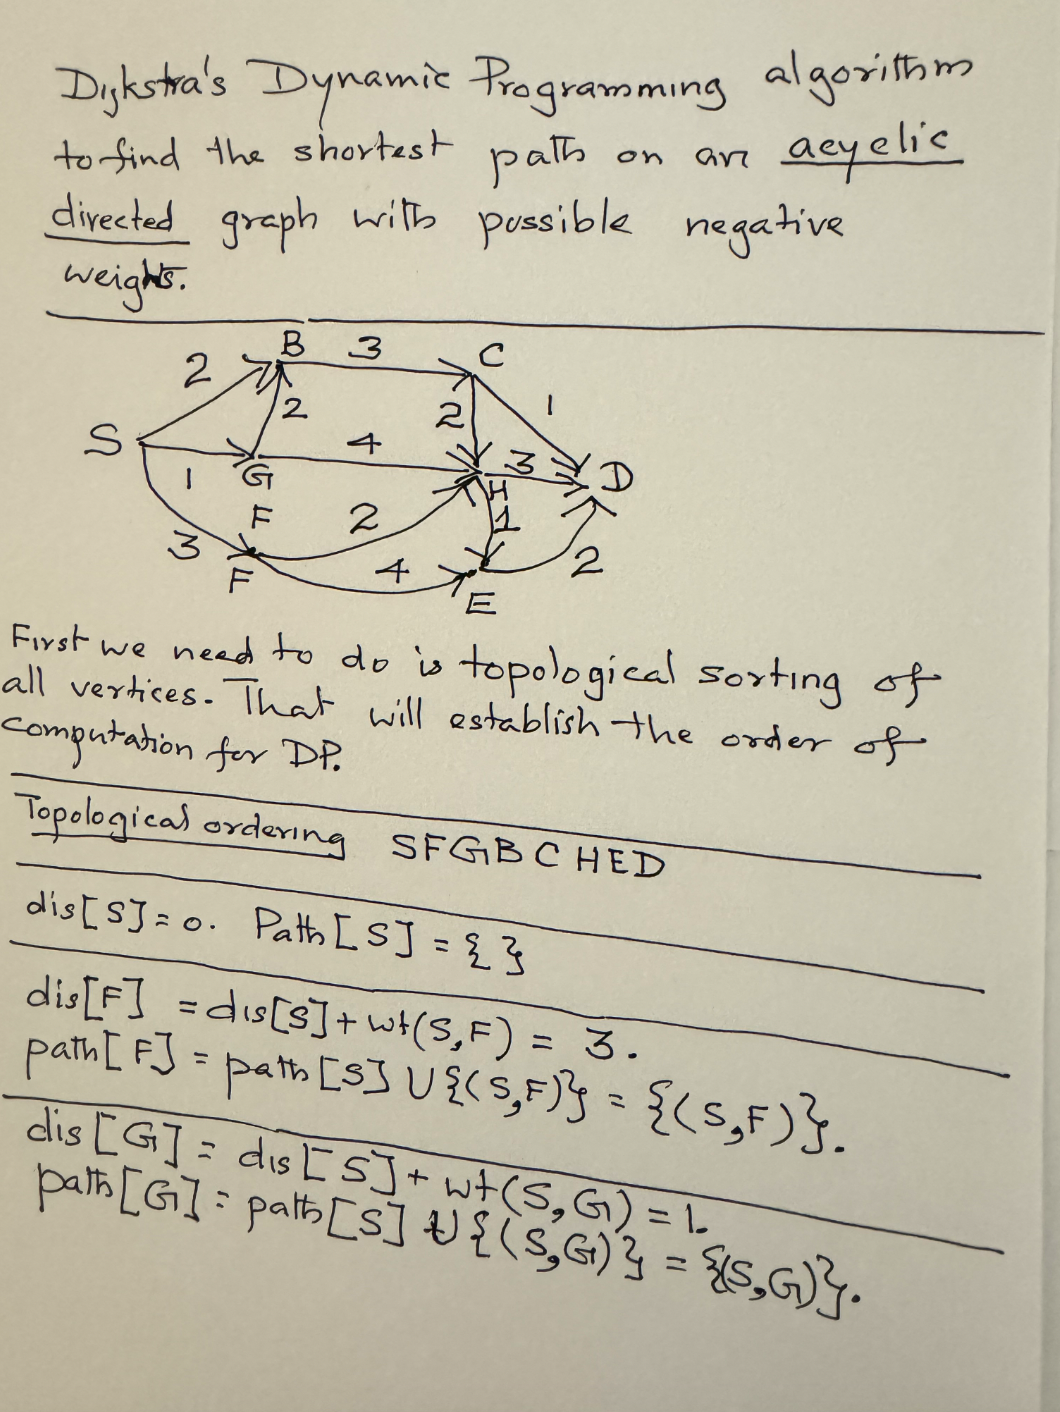 Dijkstra's Dynamic Programming algorithm
to find the shortest path on an acyclic
directed graph with possible negative
weights.
B 3 C
2 2 2 1
S 4 3 D
1 G H
F 2 1
3 4 2
F E
First we need to do is topological sorting of
all vertices. That will establish the order of
computation for DP.
Topological ordering SFGBCHED
dis[S]=0. Path[S] = { }
dis[F] = dis[S] + wt(S,F) = 3.
path[F] = path[S] U {(S,F)} = {(S,F)}.
dis[G] = dis[S] + wt(S,G) = 1.
path[G] = path[S] U {(S,G)} = {(S,G)}.